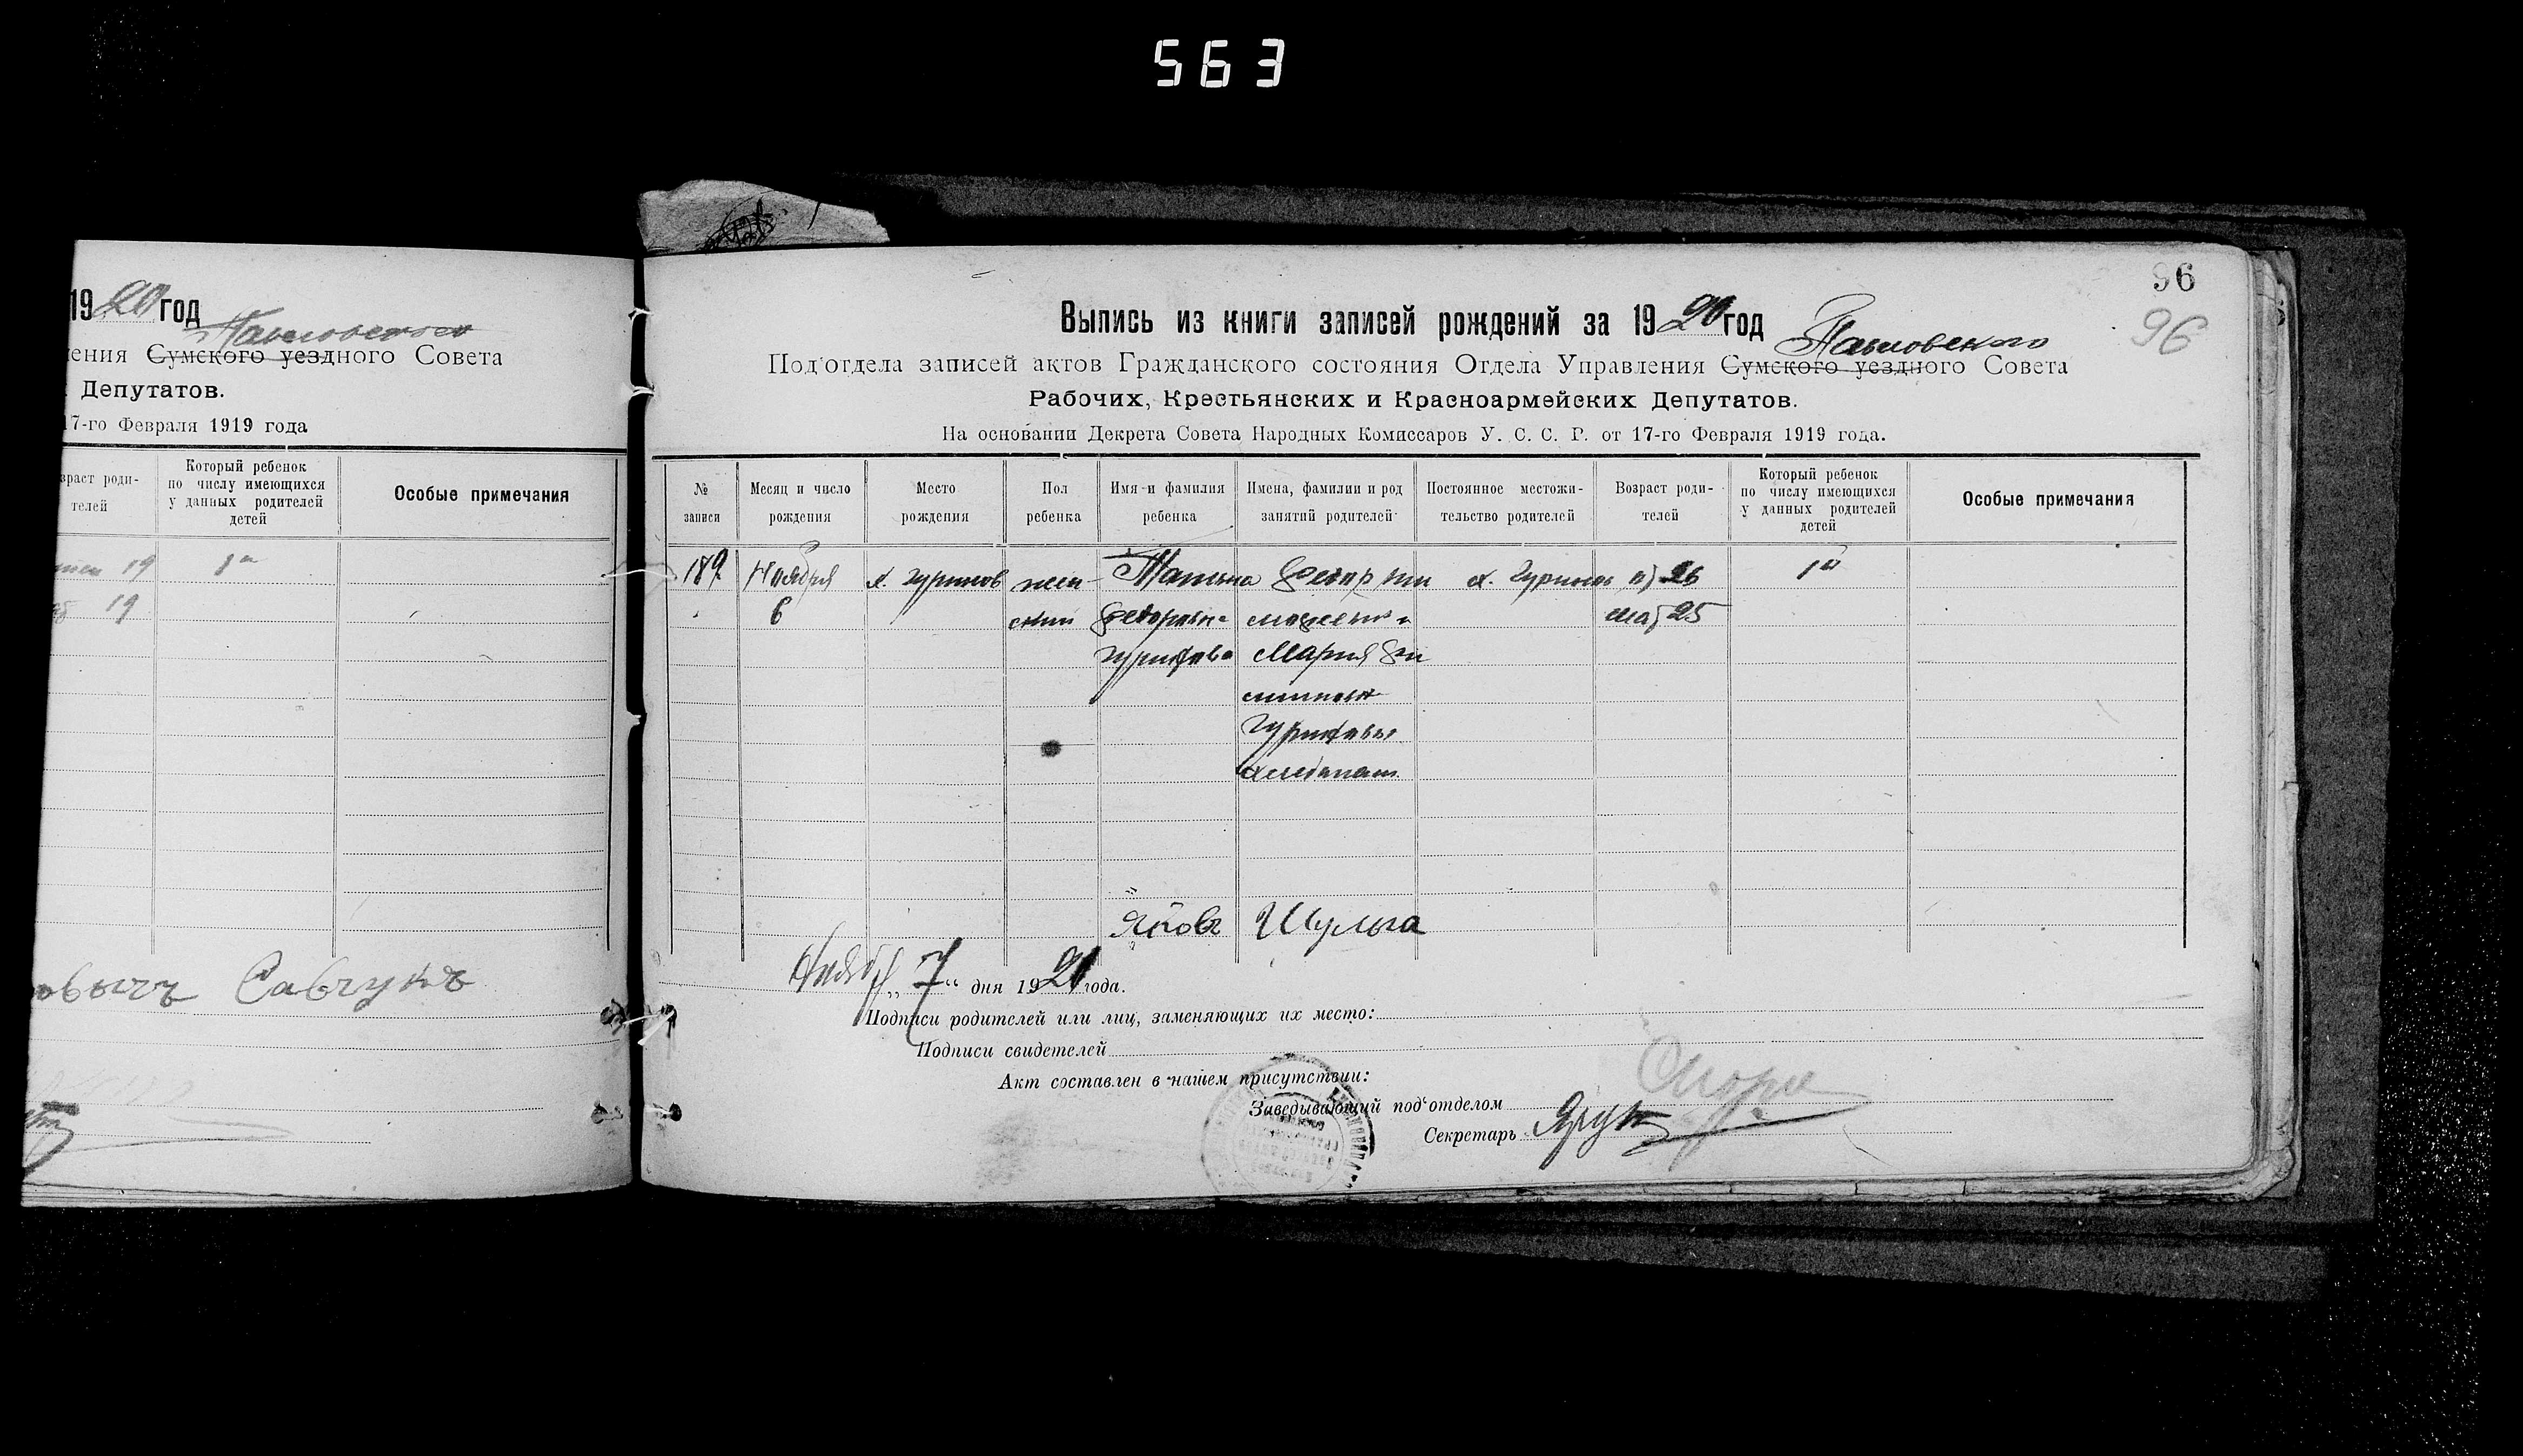 563
1920 год
Павловского
ения Сумского уездного Совета
Депутатов.
17-го Февраля 1919 года
зраст роди-
телей
Который ребенок
по числу имеющихся
у данных родителей
детей
Особые примечания
19
1й
19
Савчукъ
96
96
Выпись из книги записей рождений за 1920 год
Павловского
Под'отдела записей актов Гражданского состояния Отдела Управления Сумского уездного Совета
Рабочих, Крестьянских и Красноармейских Депутатов.
На основании Декрета Совета Народных Комиссаров У. С. С. Р. от 17-го Февраля 1919 года.
№
записи
Месяц и число
рождения
Место
рождения
Пол
ребенка
Имя и фамилия
ребенка
Имена, фамилии и род
занятий родителей
Постоянное местожи-
тельство родителей
Возраст роди-
телей
Который ребенок
по числу имеющихся
у данных родителей
детей
Особые примечания
189 Ноября х. Гуринов жен- Татьяна Федор х. Гуринов 26 1й
6 ский Федоровна 25
Мария
Яковъ Шульга
Ноября „7“ дня 1920 года.
Подписи родителей или лиц, заменяющих их место:
Подписи свидетелей
Акт составлен в нашем присутствии:
Заведывающий под'отделом
Секретарь